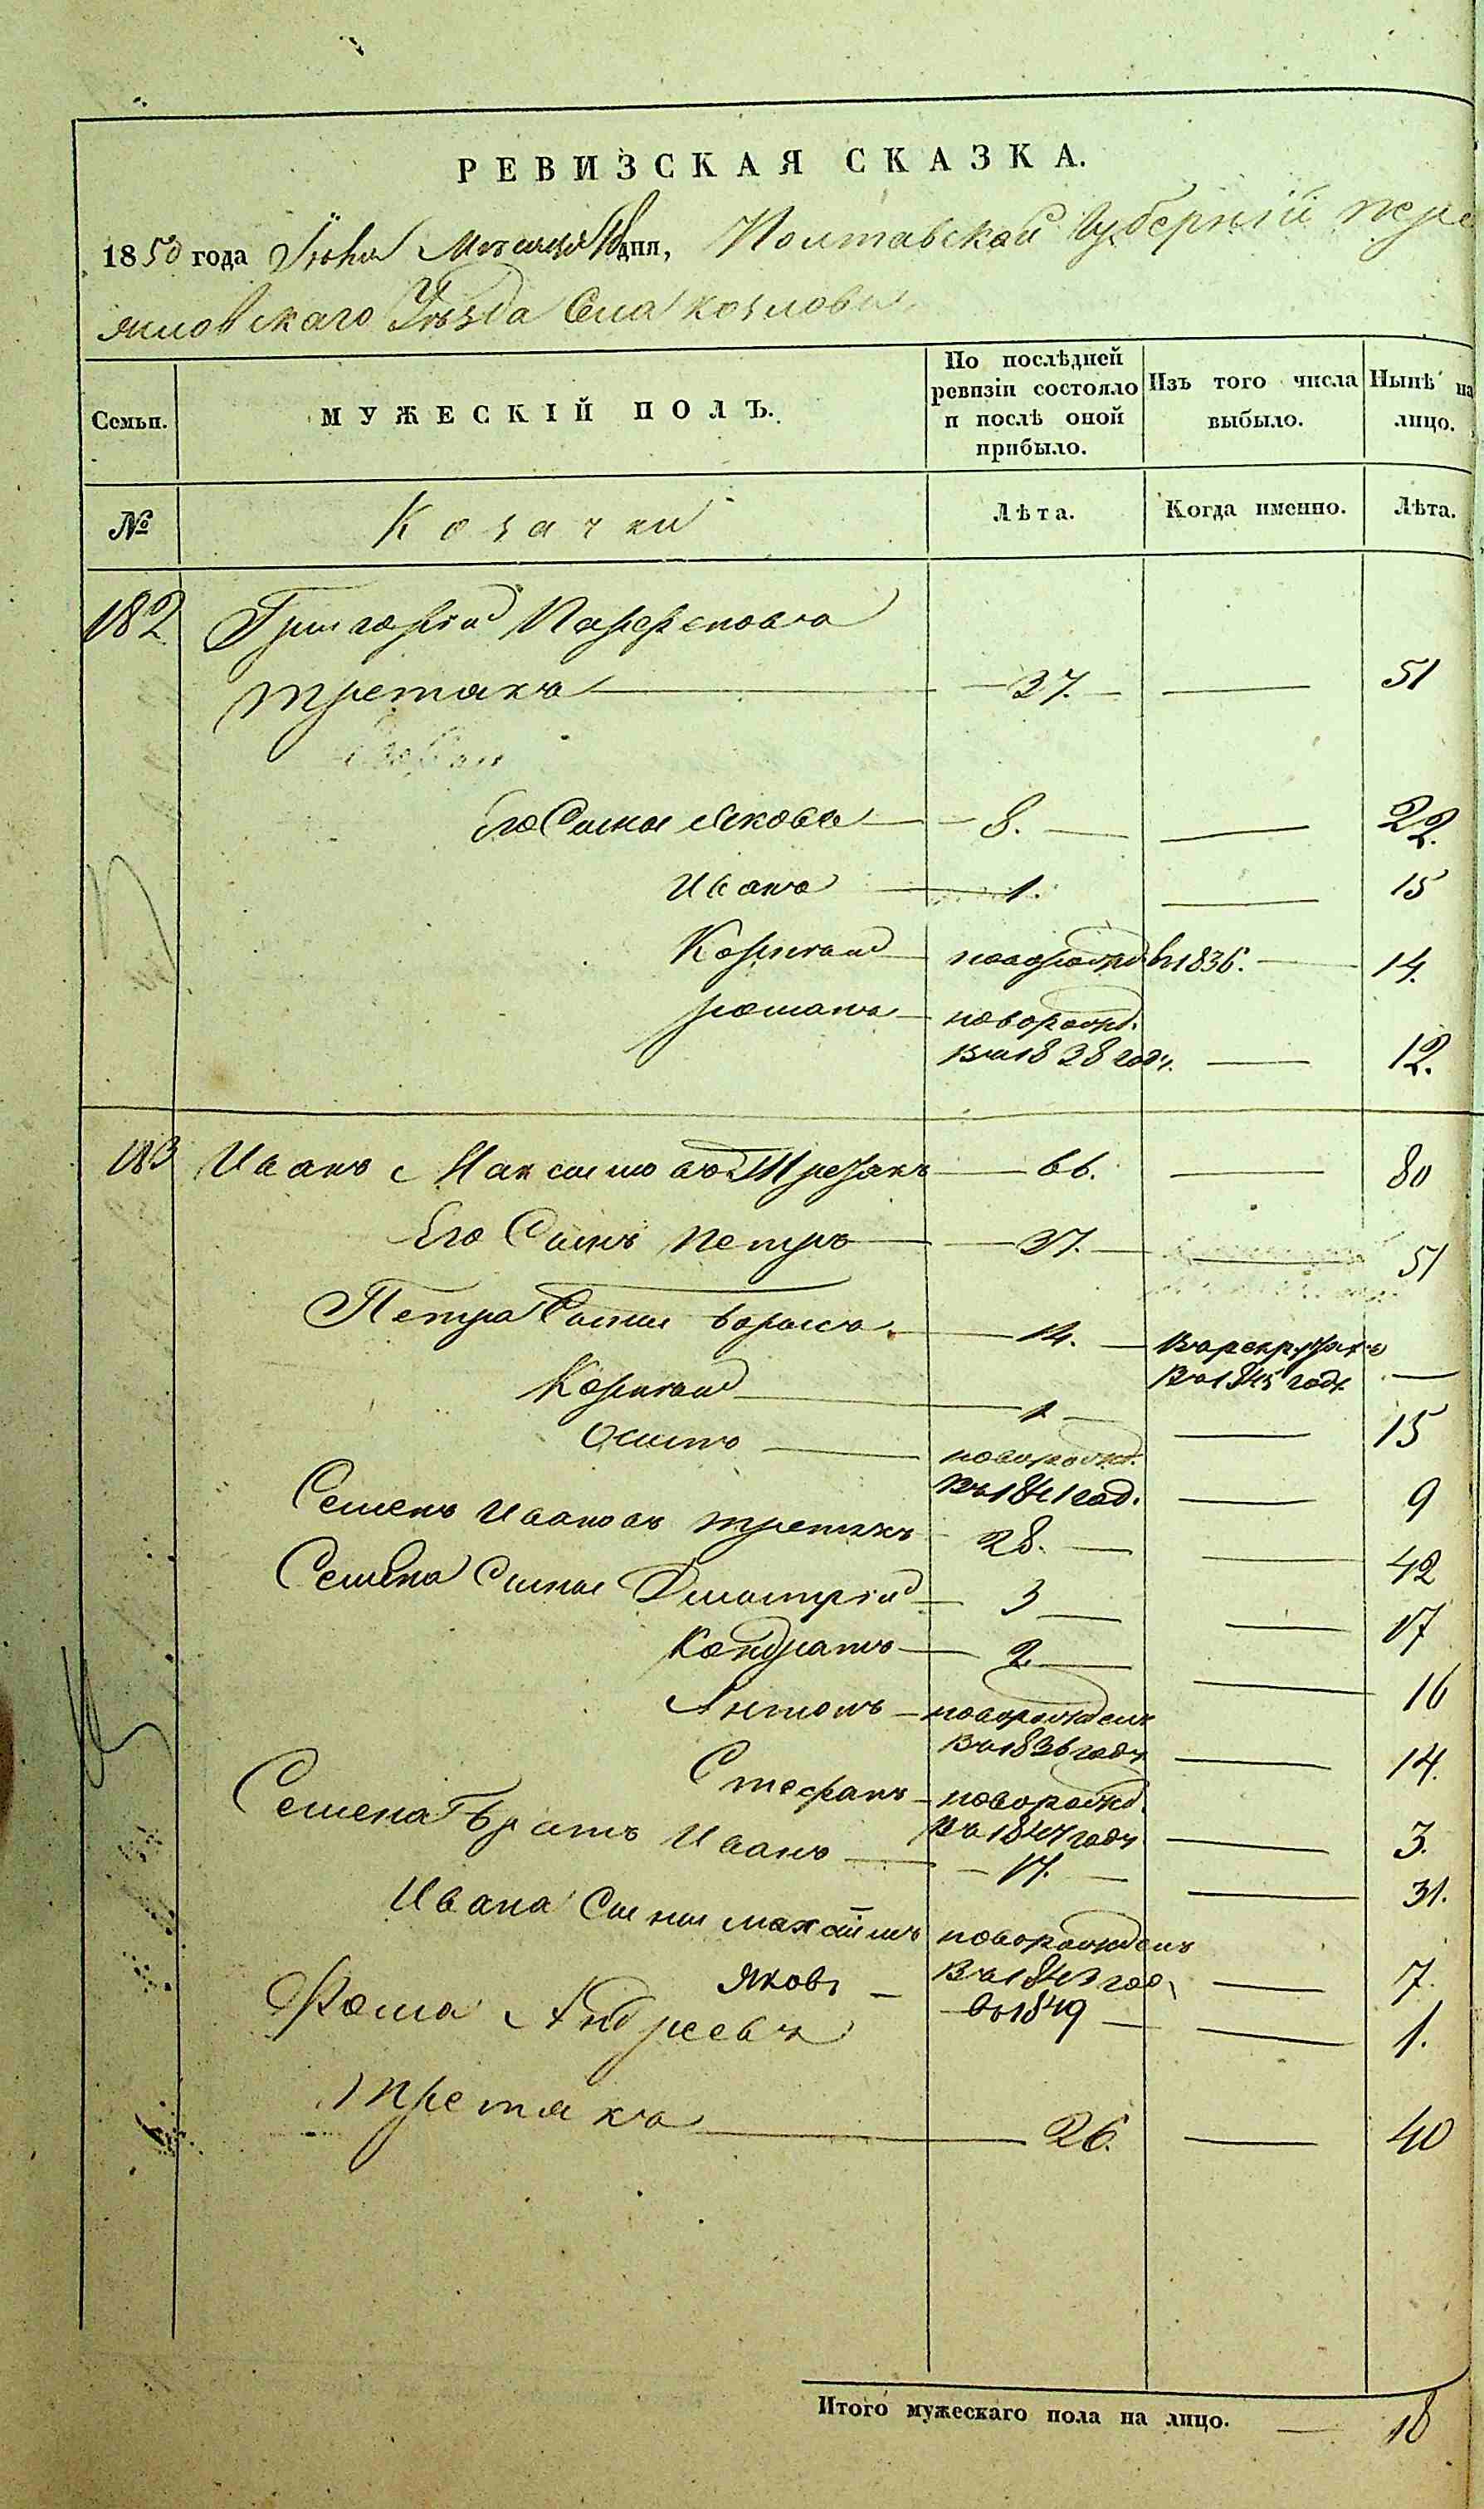 РЕВИЗСКАЯ СКАЗКА.
1850 года Іюня Месяца дня, Полтавской Губерніи пере
яловскаго Уѣзда Села козлова
Семьи.
МУЖЕСКІЙ ПОЛЪ.
По послѣдней ревизіи состояло и послѣ оной прибыло.
Изъ того числа выбыло.
Нынѣ на лицо.
№ Козачки Лѣта. Когда именно. Лѣта.
182 Григорій Парфеновъ
третякъ — 37. — — 51
Его Сыны Яковъ — 8. — — 22.
Иванъ — 1. — 15
Корнѣй — новорожд въ 1836. — 14.
романъ — новорожд.
Въ 1838 год. — 12.
183 Иванъ Максимовъ Третякъ — 66. — 80
Его Сынъ Петръ — 37. — — 51
Петра Сыны Борисъ — 14. — Въ рекрутъ
Въ 1845 годѣ —
Корнѣй — 1 — — 15
Осипъ — новорожд.
Въ 1841 год. — 9
Семенъ Ивановъ третякъ — 28. — — 42
Семена Сыны Дмитрій — 3 — — 17
Кондратъ — 2 — — 16
Антонъ — новорожденъ
Въ 1836 годѣ — 14.
Стефанъ — новорожд.
Въ 1847 годѣ — 3.
Семена Братъ Иванъ — 17. — — 31.
Ивана Сыны максимъ новорожденъ
Въ 1843 год — 7.
Яковъ — въ 1849 — — 1.
Фома Андреевъ
третякъ — 26. — 40
Итого мужескаго пола на лицо. — 18